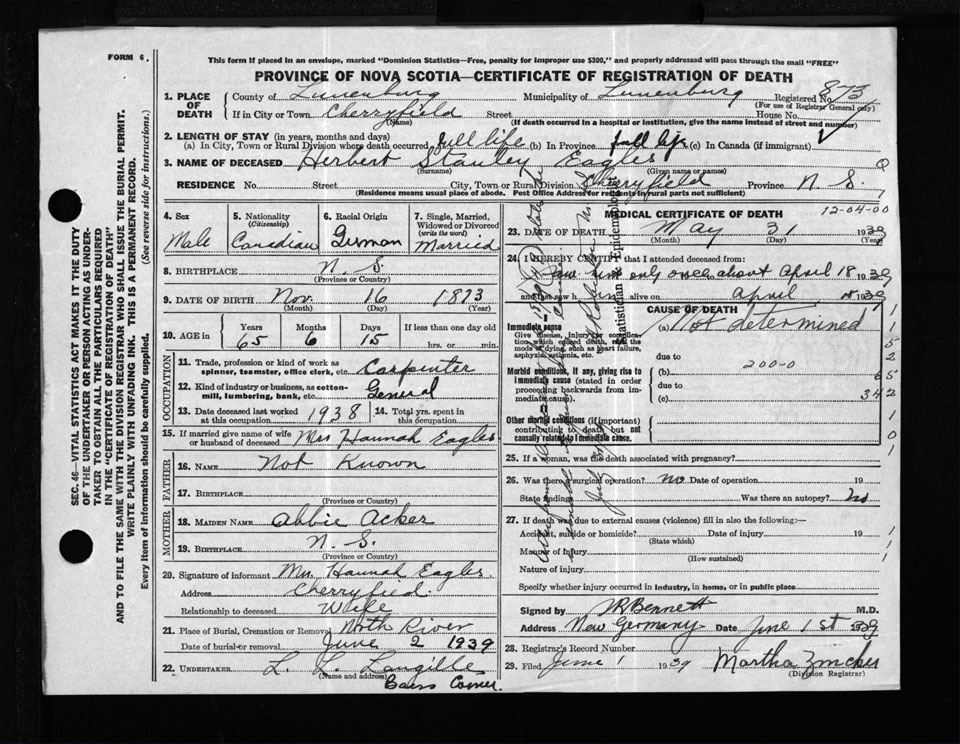 FORM 6.
This form if placed in an envelope, marked "Dominion Statistics—Free, penalty for improper use $300," and properly addressed will pass through the mail "FREE"
PROVINCE OF NOVA SCOTIA—CERTIFICATE OF REGISTRATION OF DEATH
1. PLACE OF DEATH County of Lunenburg Municipality of Lunenburg Registered No. 873
(For use of Registrar General only)
If in City or Town Cherryfield Street House No.
(Name) (If death occurred in a hospital or institution, give the name instead of street and number)
2. LENGTH OF STAY (in years, months and days)
(a) In City, Town or Rural Division where death occurred full life (b) In Province full life (c) In Canada (if immigrant)
3. NAME OF DECEASED Herbert Stanley Eagles
(Surname) (Given name or names)
RESIDENCE No. Street City, Town or Rural Division Cherryfield Province N. S.
(Residence means usual place of abode. Post Office Address for residents in rural parts not sufficient)
4. Sex Male
5. Nationality (Citizenship) Canadian
6. Racial Origin German
7. Single, Married, Widowed or Divorced (write the word) Married
8. BIRTHPLACE N. S.
(Province or Country)
9. DATE OF BIRTH Nov. 16 1873
(Month) (Day) (Year)
10. AGE in Years 65 Months 6 Days 15 If less than one day old
hrs. or min.
OCCUPATION
11. Trade, profession or kind of work as spinner, teamster, office clerk, etc. Carpenter
12. Kind of industry or business, as cotton-mill, lumbering, bank, etc. General
13. Date deceased last worked at this occupation 1938 14. Total yrs. spent in this occupation
15. If married give name of wife or husband of deceased Mrs Hannah Eagles
FATHER
16. NAME Not Known
17. BIRTHPLACE
(Province or Country)
MOTHER
18. MAIDEN NAME Abbie Acker
19. BIRTHPLACE N. S.
(Province or Country)
20. Signature of informant Mrs Hannah Eagles.
Address Cherryfied.
Relationship to deceased Wife
21. Place of Burial, Cremation or Removal North River
Date of burial or removal June 2 1939
22. UNDERTAKER L. L. Langille
(Name and address)
Barss Corner.
MEDICAL CERTIFICATE OF DEATH
12-04-00
23. DATE OF DEATH May 31 1939
(Month) (Day) (Year)
24. I HEREBY CERTIFY that I attended deceased from:
Saw him only once about April 18 1939
and last saw him alive on April 18 1939
CAUSE OF DEATH
Immediate cause (a) Not determined
Give disease, injury or complication, which caused death, not the mode of dying, such as heart failure, asphyxia, asthenia, etc.
due to
Morbid conditions, if any, giving rise to immediate cause (stated in order proceeding backwards from immediate). (b) 200-0
due to
(c)
Other morbid conditions (if important) contributing to death but not causally related to immediate cause.
1
1
5
2
65
342
1
0
1
25. If a woman, was the death associated with pregnancy?
26. Was there a surgical operation? no Date of operation 19
State findings Was there an autopsy? no
27. If death was due to external causes (violence) fill in also the following:—
Accident, suicide or homicide? Date of injury 19
(State which)
Manner of injury
(How sustained)
Nature of injury
Specify whether injury occurred in industry, in home, or in public place
Signed by Bennett M.D.
Address New Germany Date June 1st 1939
28. Registrar's Record Number
29. Filed June 1 1939 Martha Zincker
(Division Registrar)
Statistician Epidemiologist
SEC. 46—VITAL STATISTICS ACT MAKES IT THE DUTY
OF THE UNDERTAKER OR PERSON ACTING AS UNDER-
TAKER TO OBTAIN ALL THE PARTICULARS REQUIRED
IN THE "CERTIFICATE OF REGISTRATION OF DEATH"
AND TO FILE THE SAME WITH THE DIVISION REGISTRAR WHO SHALL ISSUE THE BURIAL PERMIT.
WRITE PLAINLY WITH UNFADING INK. THIS IS A PERMANENT RECORD.
Every item of information should be carefully supplied. (See reverse side for instructions.)